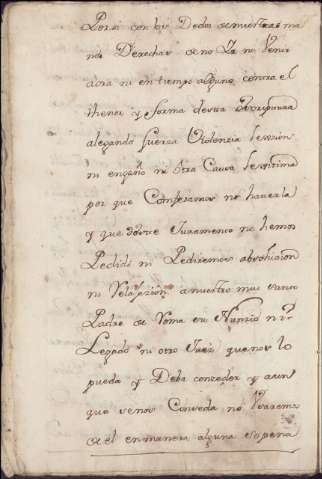 con los Dedos de nuestras ma
nos Derechas de no Ir ni Venir
aora ni en tiempo alguno contra el
thenor y forma desta Escriptura
alegando fuerza Violenzia Lession
ni engaño ni otra Causa Lexitima
por que Confesamos no haverla
y que deste Juramento no hemos
Pedido ni Pediremos absolucion
ni Relaxazion a nuestro mui Santo
Padre de Roma su Nunzio ni
Legado ni otro Juez que nos lo
pueda y Deba conzeder y aun
que se nos Conzeda no Usaremos
de el en manera alguna so pena